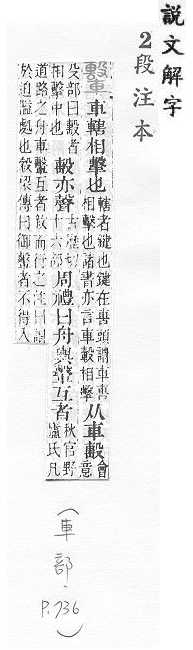 說文解字
2段注本
轚 車轄相擊也 轄者鍵也鍵在軎頭謂車軎
相擊也諸書亦言車轂相擊 从車毄 會
意
殳部曰毄者
相擊中也 毄亦聲 古歷切
十六部 周禮曰舟輿轚互者 秋官野
廬氏凡
道路之舟車轚互者敘而行之注曰謂
於迫隘處也榖梁傳曰御轚者不得入
(車部.
P.736)